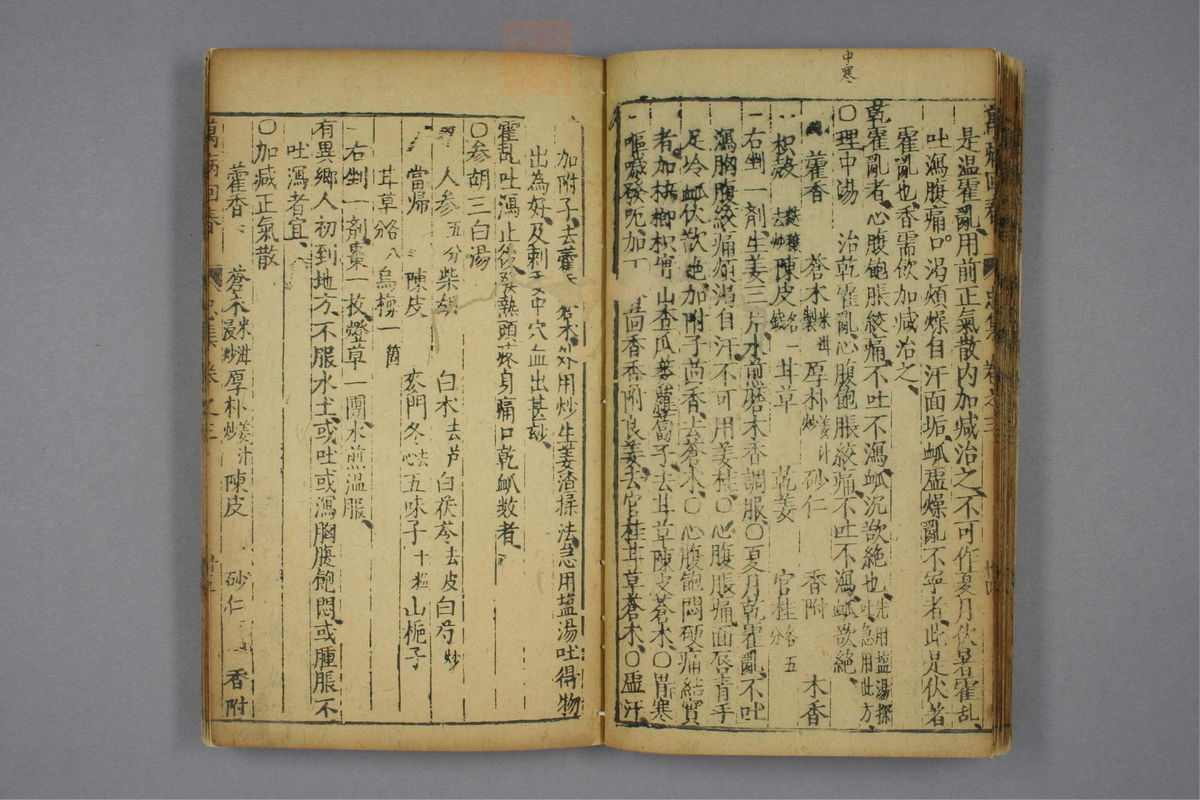 中寒
是温霍亂用前正氣散内加减治之不可作夏月伏暑霍乱
吐瀉腹痛口渴煩燥自汗面垢脉虚燥亂不寧者此是伏暑
霍亂也香需飲加减治之
乾霍亂者心腹飽脹絞痛不吐不瀉脉沉欲絶也先用塩湯探吐急用此方
○理中湯 治乾霍亂心腹飽脹絞痛不吐不瀉脉欲絶
藿香 蒼术米泔製 厚朴姜汁炒 砂仁 香附 木香
枳殻麩炒去穰 陳皮各一錢 甘草 乾姜 官桂各五分
右剉一剤生姜三片水煎磨木香調服○夏月乾霍亂不吐
瀉胸腹絞痛煩渇自汗不可用姜桂○心腹脹痛面唇青手
足冷脉伏欲絶加附子茴香去蒼术○心腹飽悶硬痛結實
者加 山查 蘿蔔子去甘草陳皮蒼术○
嘔 加 茴香香附良姜去官桂甘草蒼术○虚汗
加附子去藿 蒼术外用炒生姜渣揉法急用塩湯吐得物
出為好及刺 穴血出甚妙
霍乱吐瀉止後發熱頭疼身痛口乾脉数者
○参胡三白湯
人参五分 柴胡 白术去芦 白茯苓去皮 白芍炒
當歸 陳皮 麥門冬去心 五味子十粒 山梔子
甘草各八分 烏梅一箇
右剉一剤棗一枚燈草一團水煎温服
有異鄉人初到地方不服水土或吐或瀉胸膈飽悶或腫脹不
吐瀉者宜
○加减正氣散
藿香 蒼术米泔浸炒 厚朴姜汁炒 陳皮 砂仁 香附
萬病回春 忠集 卷之三